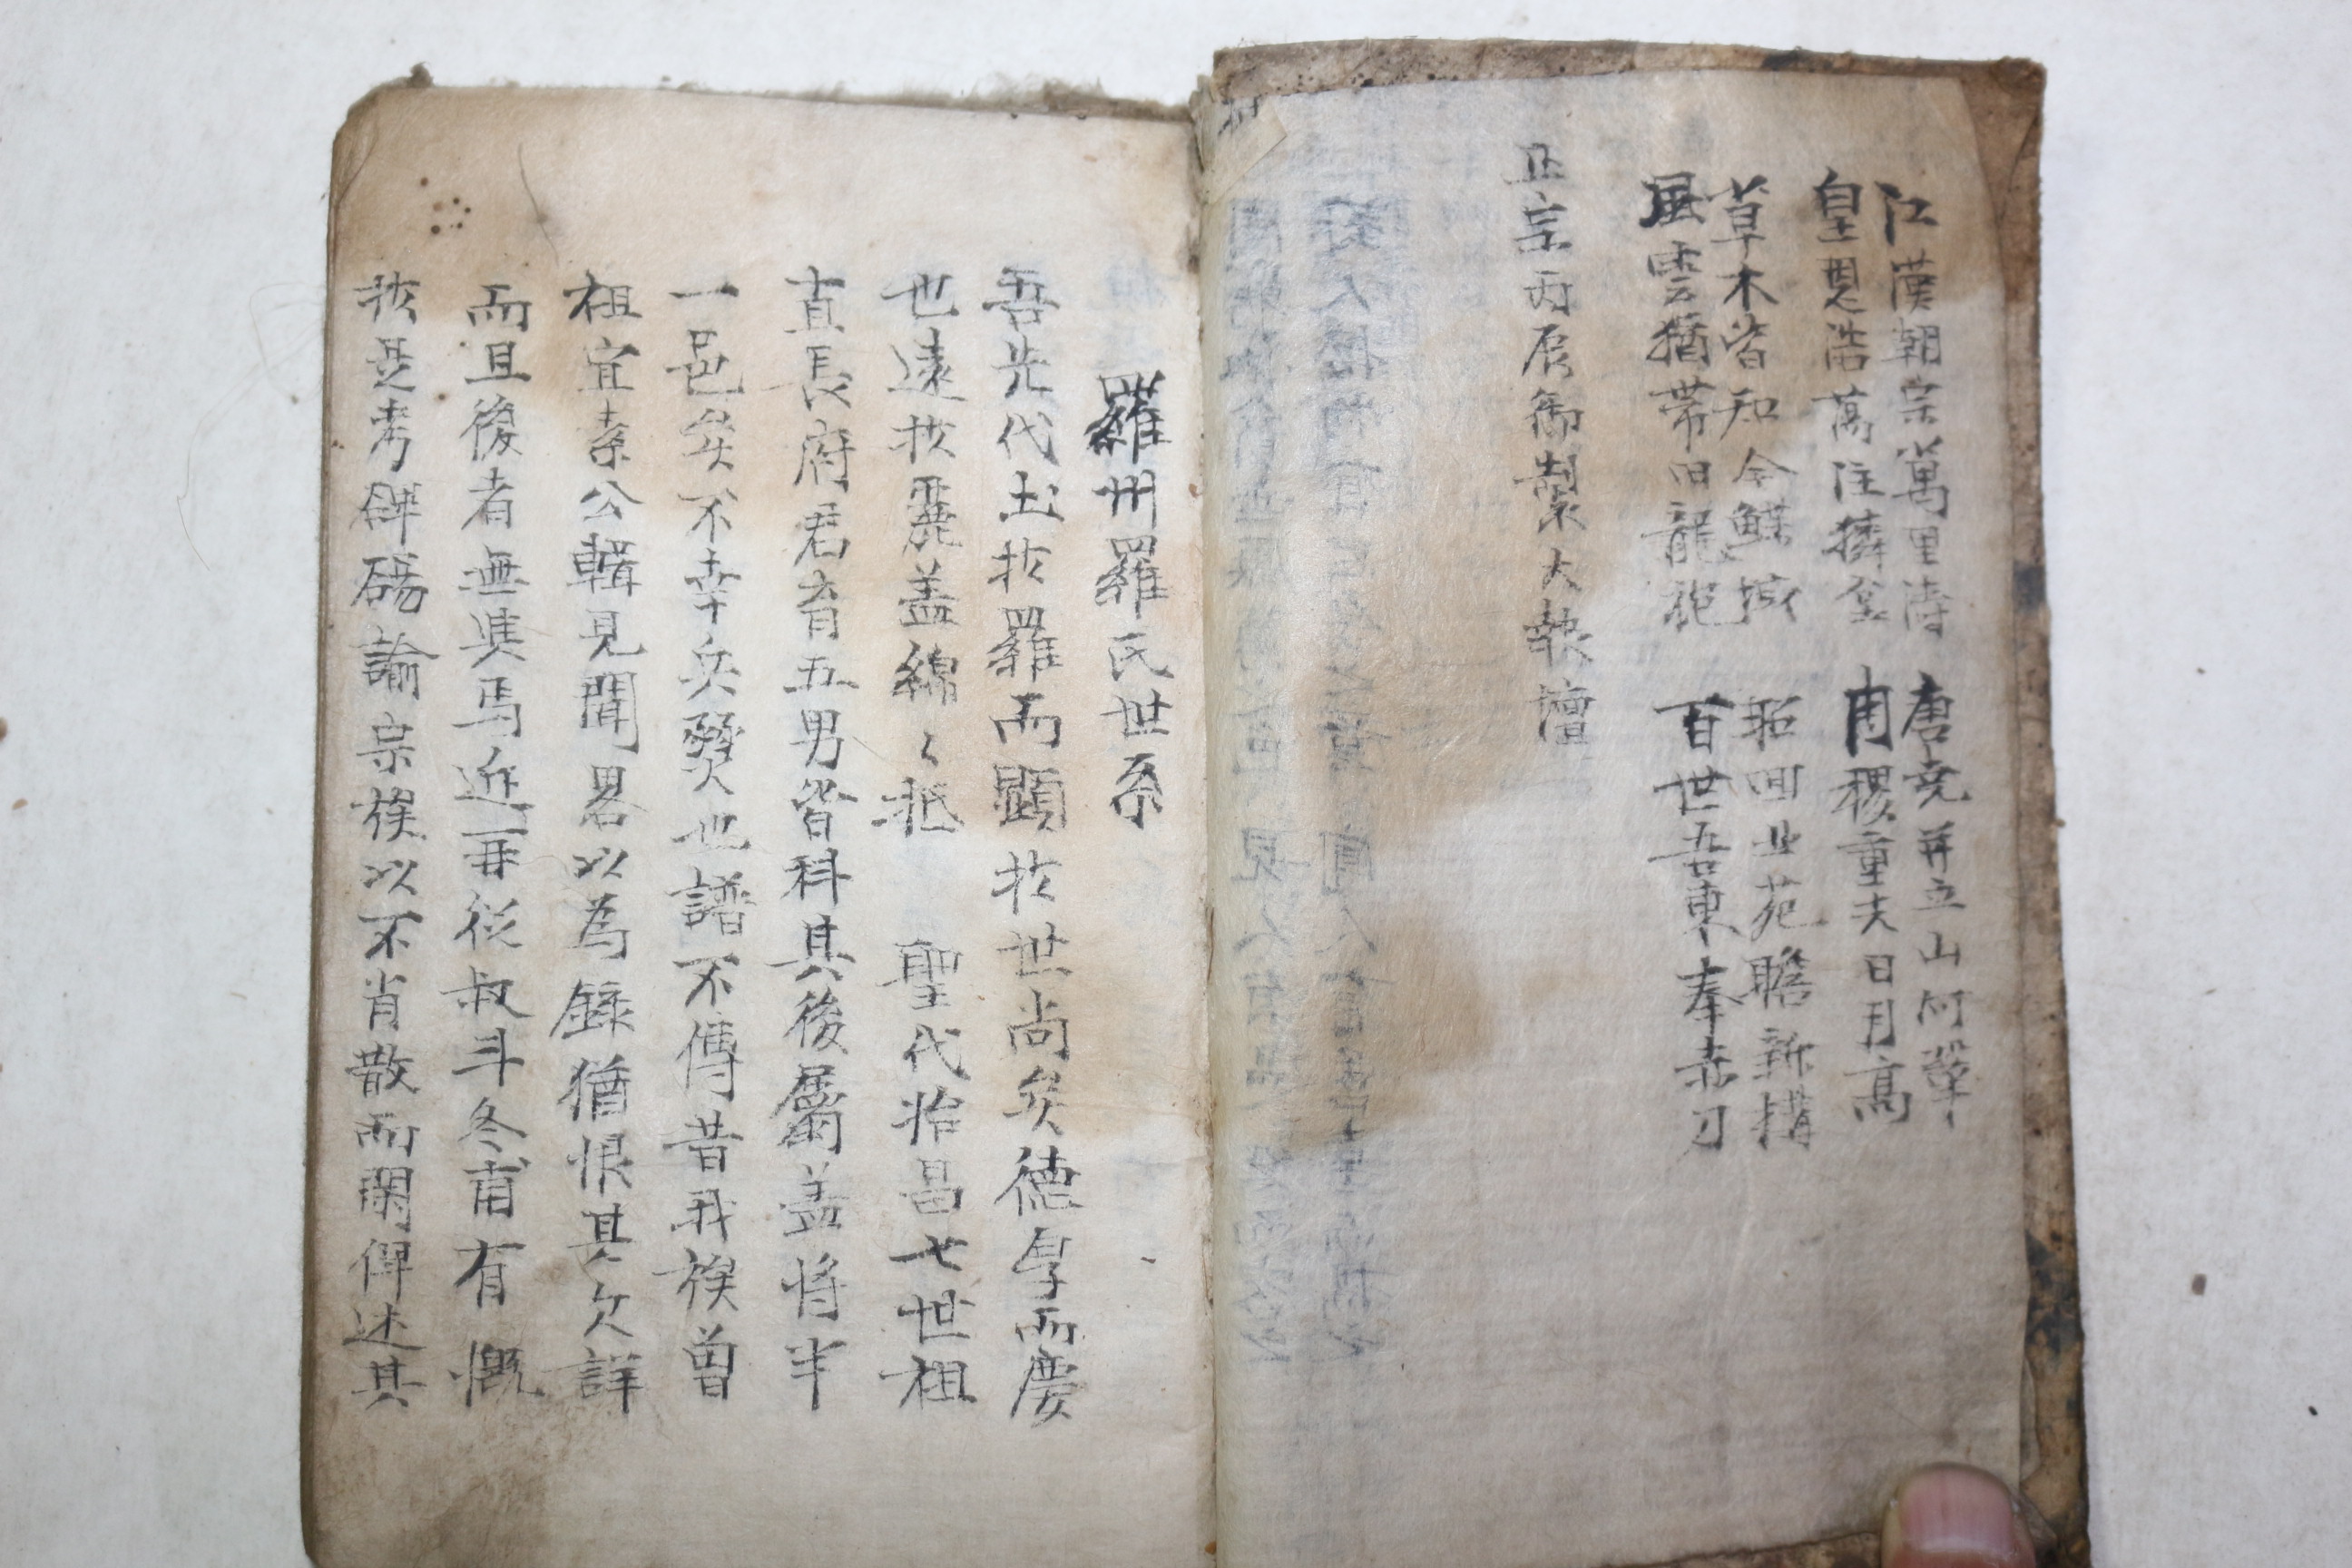 江漢朝宗萬里濤 唐堯並立山河鞏
皇恩浩萬注 周稷重夫日月高
草木皆知今鰈域 昭回此苑瞻新搆
風雲猶帶旧龍袍 百世吾東奉赤刀
正宗丙辰御製大報壇
羅州羅氏世系
吾先代土於羅而顯於世尚矣德厚而慶
也遠於麗盖綿〻抵 聖代始昌七世祖
直長府君育五男皆科其後屬盖將半
一邑矣不幸兵燹也譜不傳昔我族曾
祖宜素公輯見聞畧以為錄猶恨其欠詳
而且後者無焉近再從叔斗冬甫有慨
於是考諭宗族以不肖散而閑俾述其